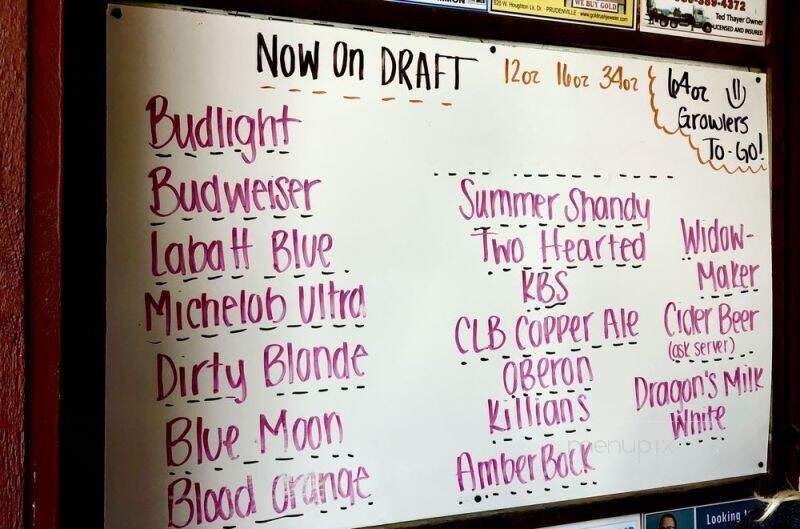 828 W. Houghton Lk. Dr. - PRUDENVILLE
WE BUY GOLD
www.goldrushjeweler.com
Ted Thayer Owner
LICENSED AND INSURED
NOW ON DRAFT
12oz 16oz 34oz
64oz
Growlers
To-Go!
Budlight
Budweiser
Labatt Blue
Michelob Ultra
Dirty Blonde
Blue Moon
Blood Orange
Summer Shandy
Two Hearted
KBS
CLB Copper Ale
Oberon
Killians
AmberBock
Widow-
Maker
Cider Beer
(ask server)
Dragon's Milk
White
menupix
Looking